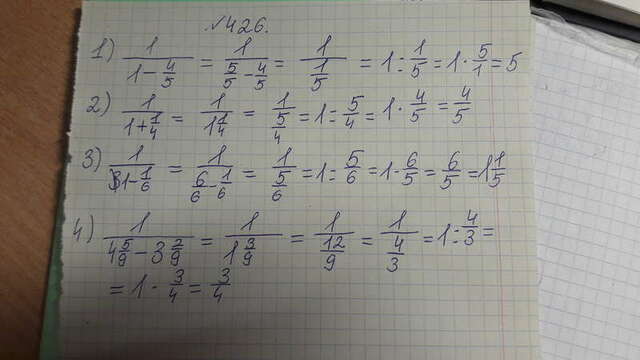 №426.
1) 1/(1-4/5) = 1/(5/5-4/5) = 1/(1/5) = 1:1/5 = 1·5/1 = 5
2) 1/(1+1/4) = 1/(1 1/4) = 1/(5/4) = 1:5/4 = 1·4/5 = 4/5
3) 1/(1-1/6) = 1/(6/6-1/6) = 1/(5/6) = 1:5/6 = 1·6/5 = 6/5 = 1 1/5
4) 1/(4 5/9-3 2/9) = 1/(1 3/9) = 1/(12/9) = 1/(4/3) = 1:4/3 =
= 1·3/4 = 3/4